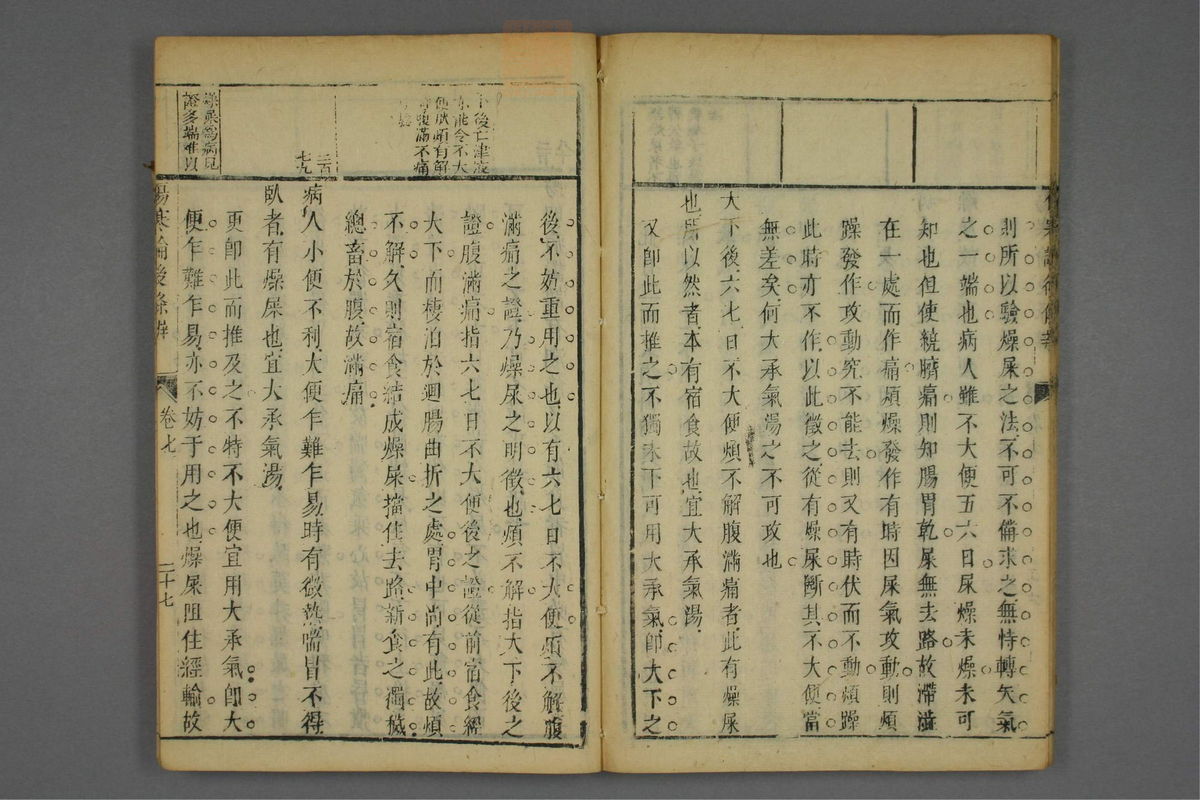 則所以驗燥屎之法不可不備求之無恃轉矢氣
之一端也病人雖不大便五六日屎燥未燥未可
知也但使繞臍痛則知腸胃乾屎無去路故滯澁
在一處而作痛煩燥發作有時因屎氣攻動則煩
躁發作攻動究不能去則又有時伏而不動煩躁
此時亦不作以此徵之從有燥屎斷其不大便當
無差矣何大承氣湯之不可攻也
大下後六七日不大便煩不解腹滿痛者此有燥屎
也所以然者本有宿食故也宜大承氣湯
又卽此而推之不獨未下可用大承氣卽大下之
下後亡津液
能令不大
便然煩有解
時腹滿不痛
後不妨重用之也以有六七日不大便煩不解腹
滿痛之證乃燥屎之明徵也煩不解指大下後之
證腹滿痛指六七日不大便後之證從前宿食經
大下而棲泊於迴腸曲折之處胃中尚有此故煩
不解久則宿食結成燥屎擋住去路新食之濁穢
總畜於腹故滿痛
三百
七九
病人小便不利大便乍難乍易時有微熱喘冒不得
臥者有燥屎也宜大承氣湯
燥屎爲病見
證多端難以
更卽此而推及之不特不大便宜用大承氣卽大
便乍難乍易亦不妨于用之也燥屎阻住經輸故
傷寒論後條辨
卷七
二十七